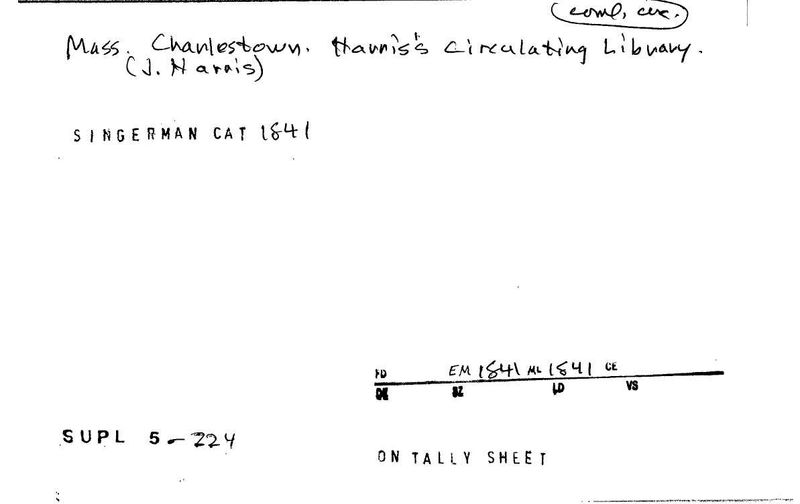 (coml, circ.)
Mass. Charlestown. Harris's Circulating Library.
(J. Harris)
SINGERMAN CAT 1841
FD EM 1841 ML 1841 CE
DE SZ LD VS
SUPL 5-224
ON TALLY SHEET